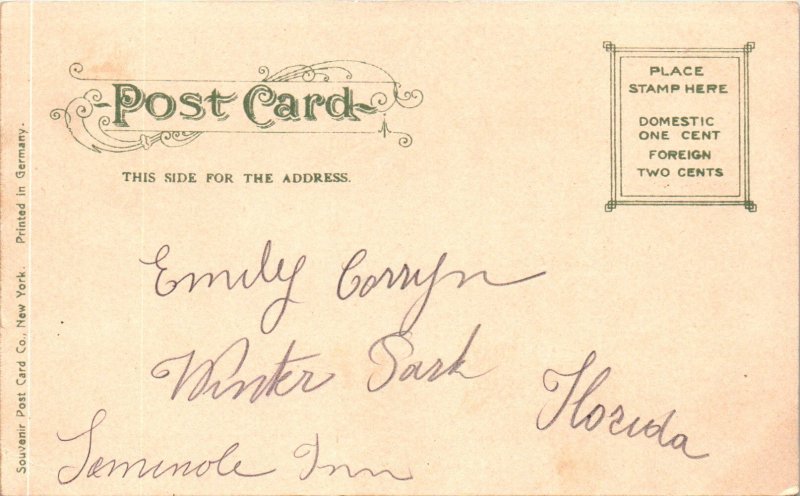 Post Card
THIS SIDE FOR THE ADDRESS.
PLACE
STAMP HERE
DOMESTIC
ONE CENT
FOREIGN
TWO CENTS
Emily Corryn
Winter Park
Florida
Seminole Inn
Souvenir Post Card Co., New York. Printed in Germany.